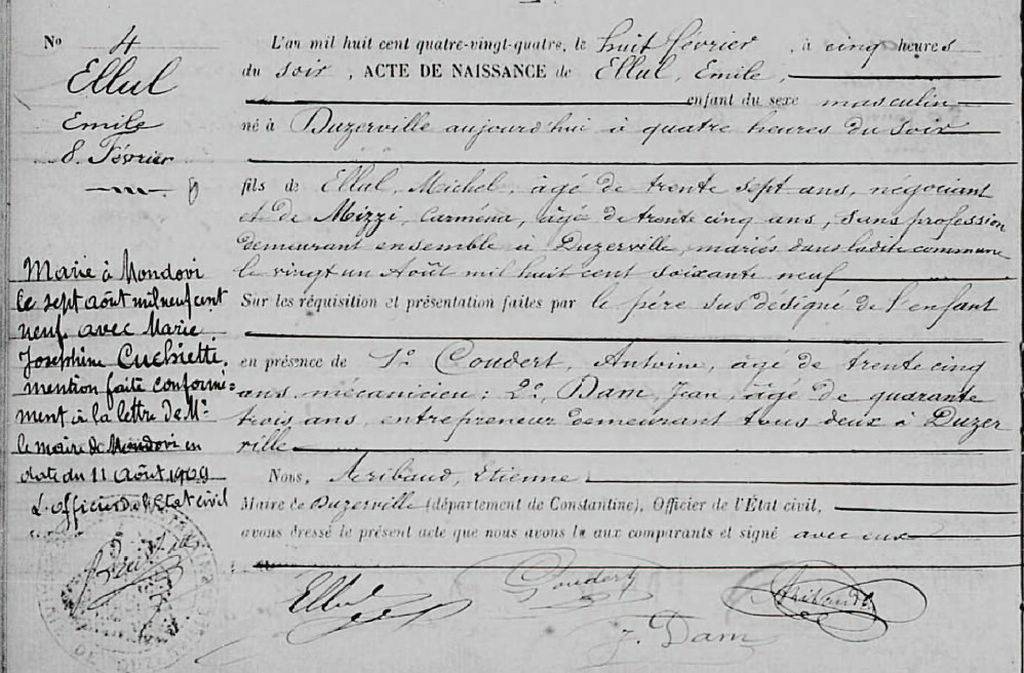 No 4
Ellul
Emile
8. Février
Marié à Mondovi
le sept août mil neuf cent
neuf avec Marie
Josephine Cuchietti.
mention faite conformé=
ment à la lettre de Mr
le maire de Mondovi en
date du 11 Août 1909
L'officier de l'Etat civil
L'an mil huit cent quatre-vingt-quatre, le huit février, à cinq heures
du soir, ACTE DE NAISSANCE de Ellul, Emile,
enfant du sexe masculin
né à Duzerville aujourd'hui à quatre heures du soir
fils de Ellul, Michel, âgé de trente sept ans, négociant
et de Mizzi, Carména, âgée de trente cinq ans, sans profession
demeurant ensemble à Duzerville, mariés dans ladite commune
le vingt un Août mil huit cent soixante neuf
Sur les réquisition et présentation faites par le père susdésigné de l'enfant
en présence de 1º Coudert, Antoine, âgé de trente cinq
ans, mécanicien; 2º, Dam, Jean, âgé de quarante
trois ans, entrepreneur demeurant tous deux à Duzer
ville
Nous, Aribaud, Etienne
Maire de Duzerville (département de Constantine), Officier de l'État civil,
avons dressé le présent acte que nous avons lu aux comparants et signé avec eux
Ellul Coudert Aribaud
J. Dam